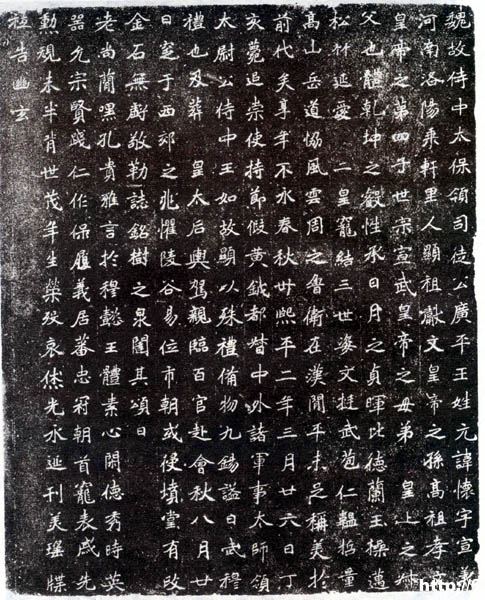 魏故侍中太保領司徒公廣平王姓元諱懷字宣義
河南洛陽乘軒里人顯祖獻文皇帝之孫高祖孝文
皇帝之第四子世宗宣武皇帝之母弟 皇上之叔
父也體乾坤之叡性承日月之貞暉比德蘭玉操邁
松竹延愛 二皇寵結三世姿文挺武苞仁韞哲量
高山岳道協風雲周之魯衛在漢間平未足稱美於
前代矣享年不永春秋卅熙平二年三月廿六日丁
亥薨追崇使持節假黃鉞都督中外諸軍事太師領
太尉公侍中王如故顯以殊禮備物九錫謚曰武穆
禮也及葬 皇太后輿駕親臨百官赴會秋八月廿
日窆于西郊之兆懼陵谷易位市朝或侵墳堂有改
金石無虧敬勒誌銘樹之泉闥其頌曰
老尚簡嘿孔貴雅言於穆懿王體素心閑德秀時英
器允宗賢踐仁作保履義居蕃忠冠朝首寵表戚先
勳規未半背世茂年生榮歿哀休光永延刊美瑤牒
祇告幽玄
http://f